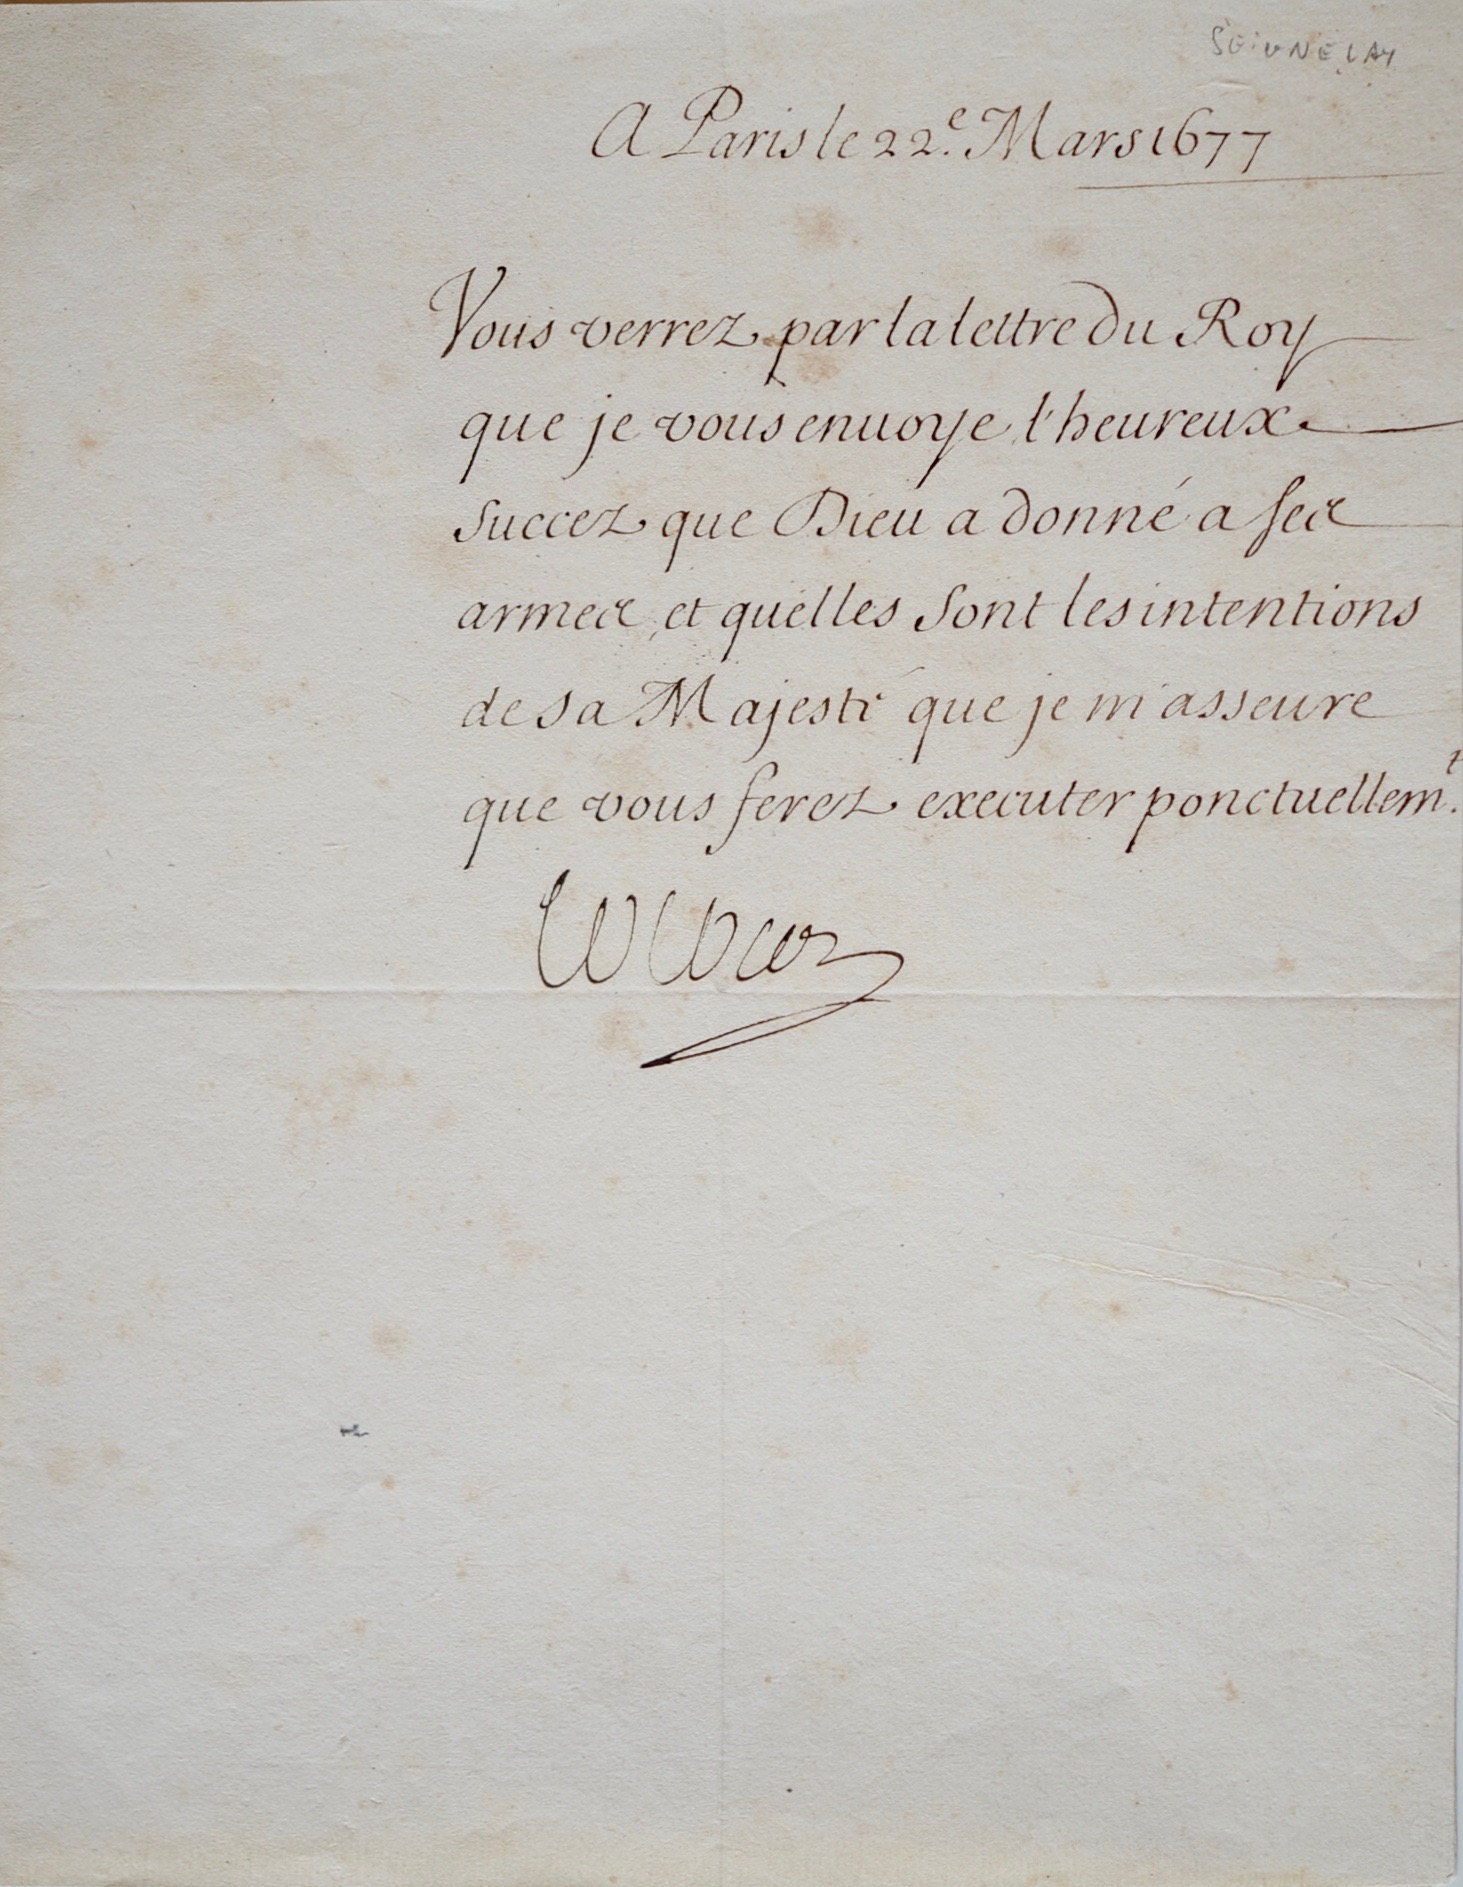 SEIGNELAY
A Paris le 22.e Mars 1677
Vous verrez par la lettre du Roy
que je vous enuoye l'heureux
succez que Dieu a donné a ses
armes, et quelles sont les intentions
de sa Majesté que je m'asseure
que vous ferez executer ponctuellem.t